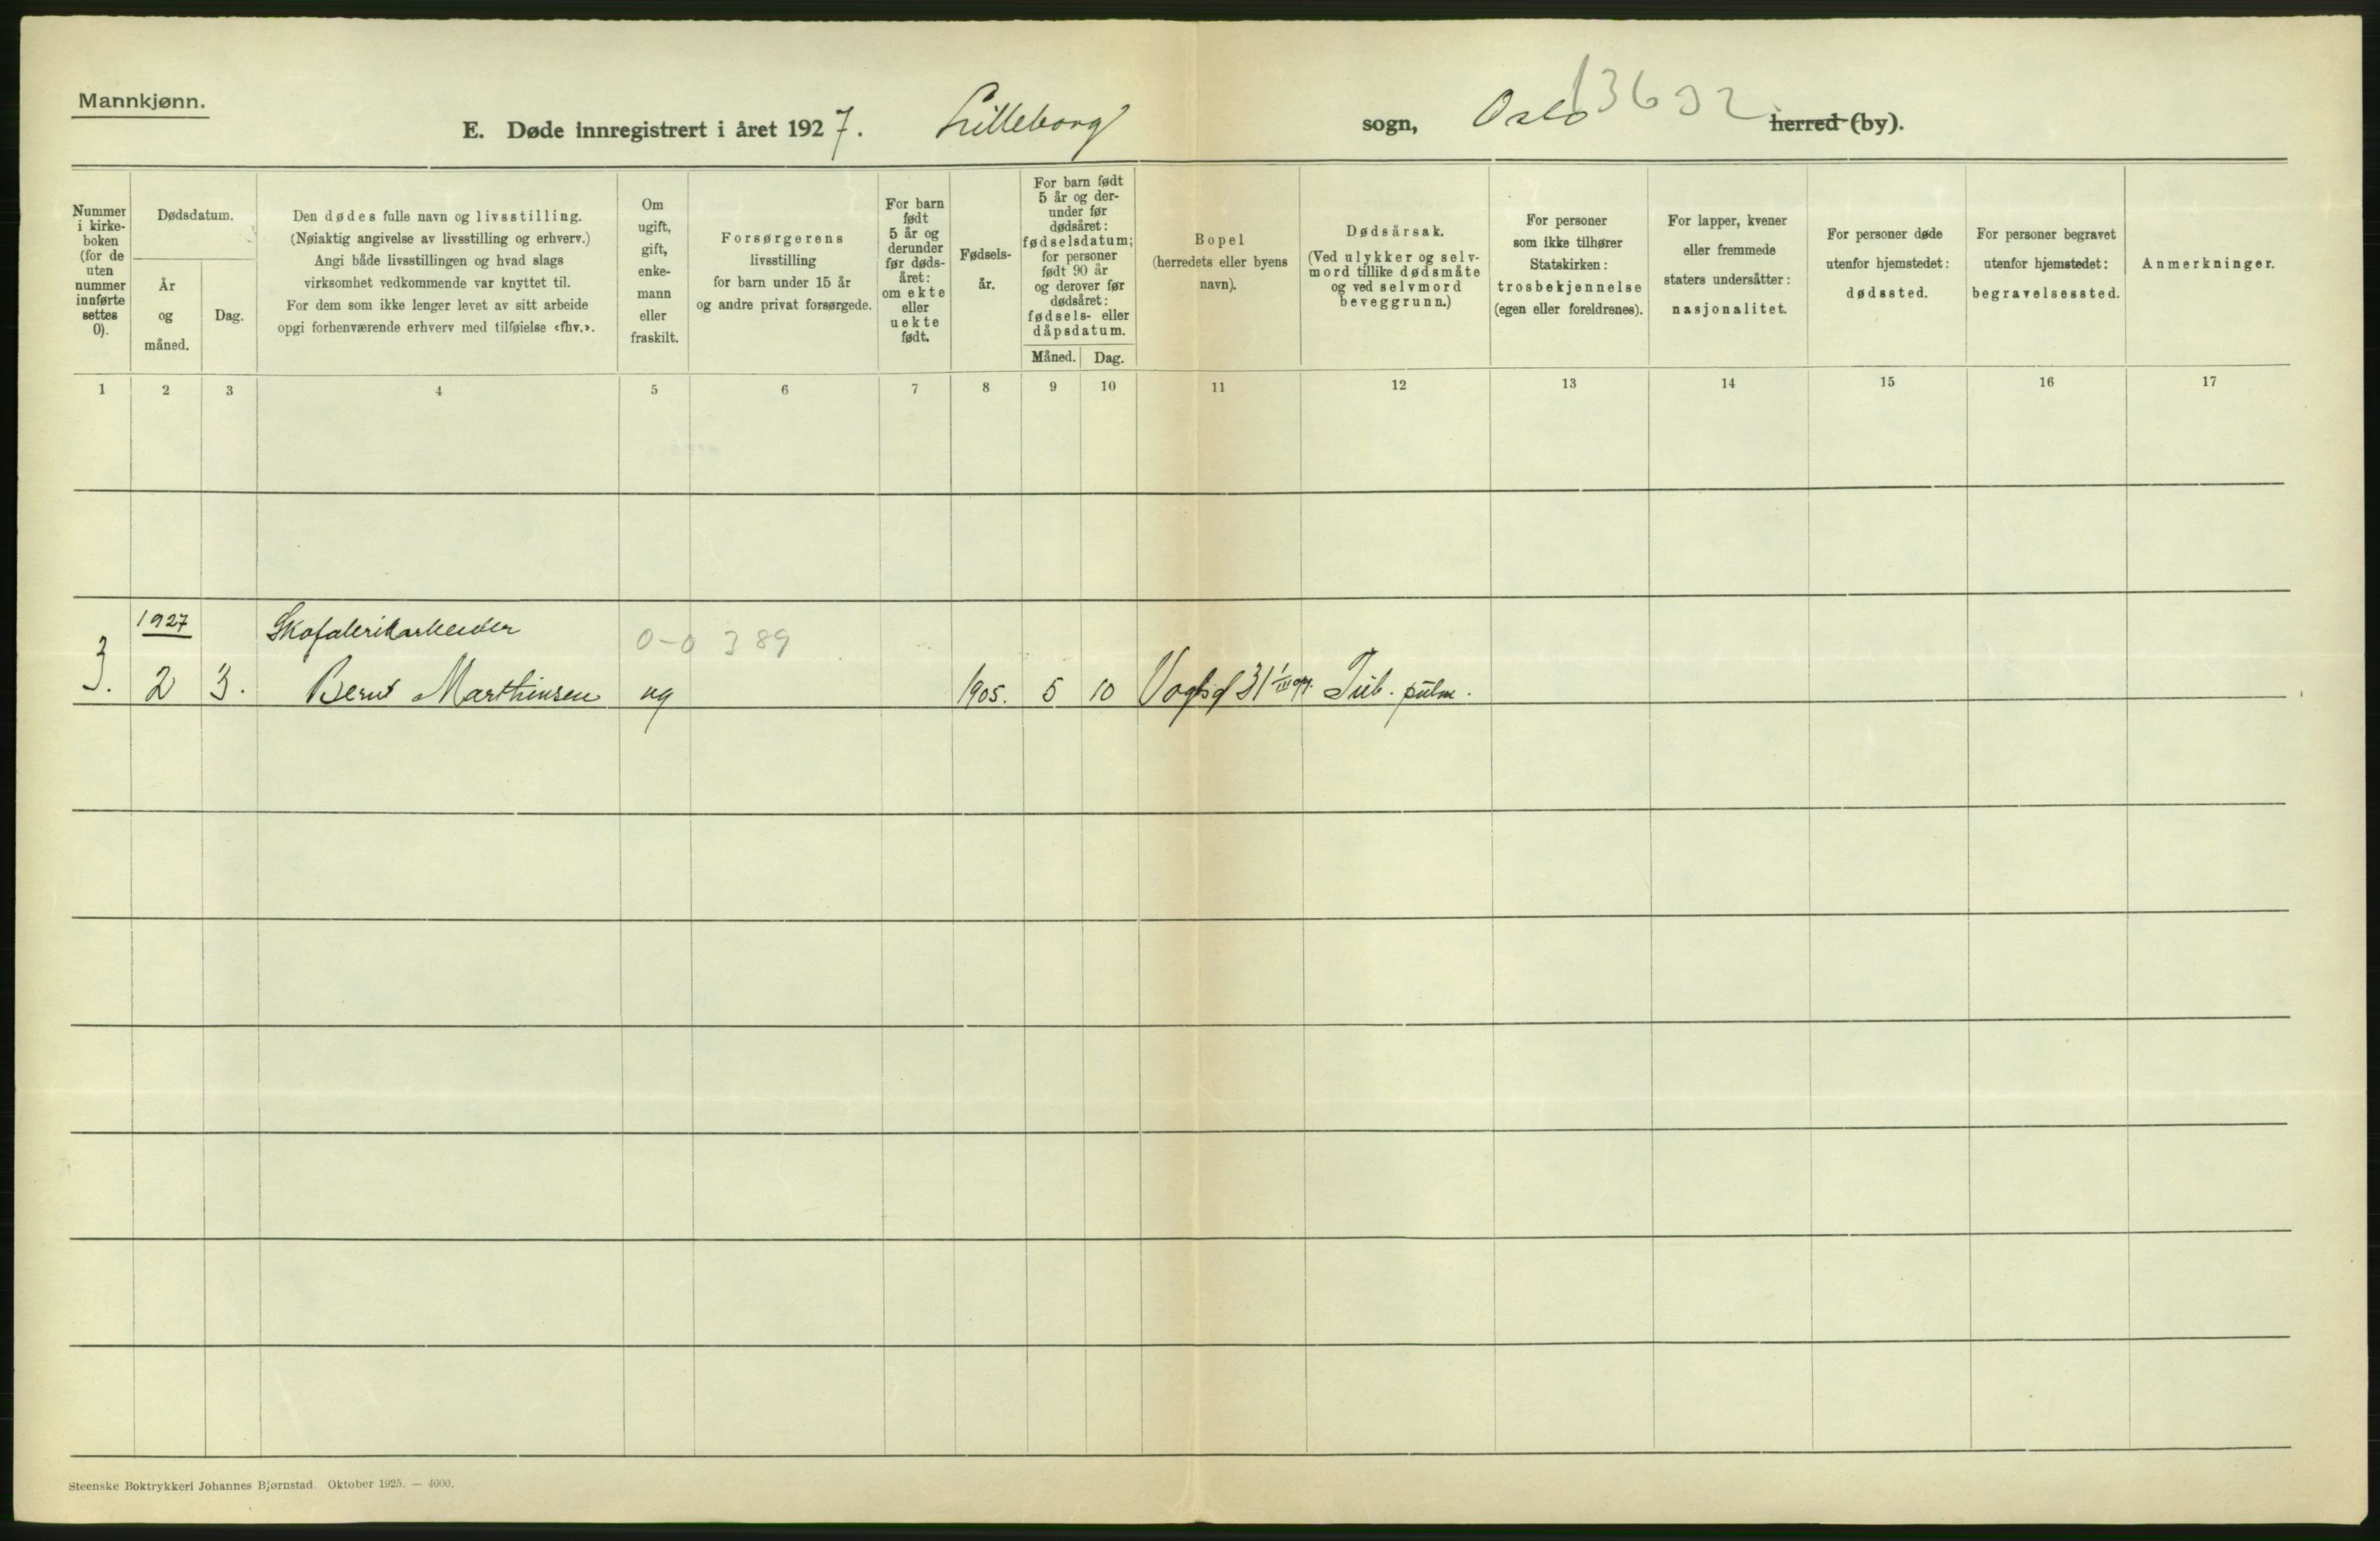 Mannkjønn.
E. Døde innregistrert i året 1927. Lilleborg sogn, Oslo herred (by).
Nummer i kirke- boken (for de uten nummer innførte settes 0).
Dødsdatum.
År og måned.
Dag.
Den dødes fulle navn og livsstilling.
(Nøiaktig angivelse av livsstilling og erhverv.)
Angi både livsstillingen og hvad slags
virksomhet vedkommende var knyttet til.
For dem som ikke lenger levet av sitt arbeide
opgi forhenværende erhverv med tilføielse «fhv.».
Om ugift, gift, enke- mann eller fraskilt.
Forsørgerens
livsstilling
for barn under 15 år
og andre privat forsørgede.
For barn født 5 år og derunder før døds- året: om ekte eller uekte født.
Fødsels- år.
For barn født 5 år og der- under før dødsåret: fødselsdatum; for personer født 90 år og derover før dødsåret: fødsels- eller dåpsdatum.
Måned.
Dag.
Bopel
(herredets eller byens
navn).
Dødsårsak.
(Ved ulykker og selv-
mord tillike dødsmåte
og ved selvmord
beveggrunn.)
For personer
som ikke tilhører
Statskirken:
trosbekjennelse
(egen eller foreldrenes).
For lapper, kvener
eller fremmede
staters undersåtter:
nasjonalitet.
For personer døde
utenfor hjemstedet:
dødssted.
For personer begravet
utenfor hjemstedet:
begravelsessted.
Anmerkninger.
1 2 3 4 5 6 7 8 9 10 11 12 13 14 15 16 17
1927 Skofabrikarbeider 0-0 389
3. 2 3. Bernt Marthinsen ug 1905. 5 10 31 Tub. pulm.
Steenske Boktrykkeri Johannes Bjørnstad. Oktober 1925. — 4000.